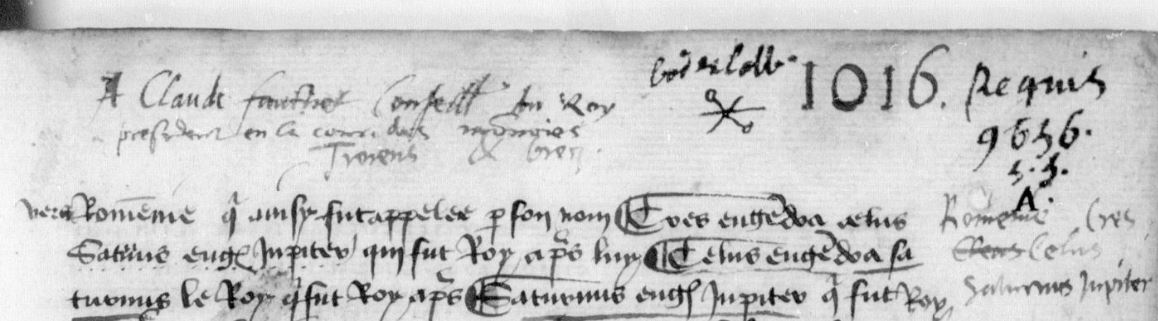 A Claude fauchet Conseill du Roy
president en la court des monnoies
1016.
Requis
9656.
5.5.
A.
vers Romēnie q̃ ainsy fut appelee ꝑ son nom Cres engēdra celus
Saturnus eng Jupiter qui fut Roy ap̃s luy Celus engēdra sa
turnus le Roy q̃ fut Roy ap̃s Saturnus eng Jupiter q̃ fut Roy
Romenie Cres
Celus
Saturnus Jupiter